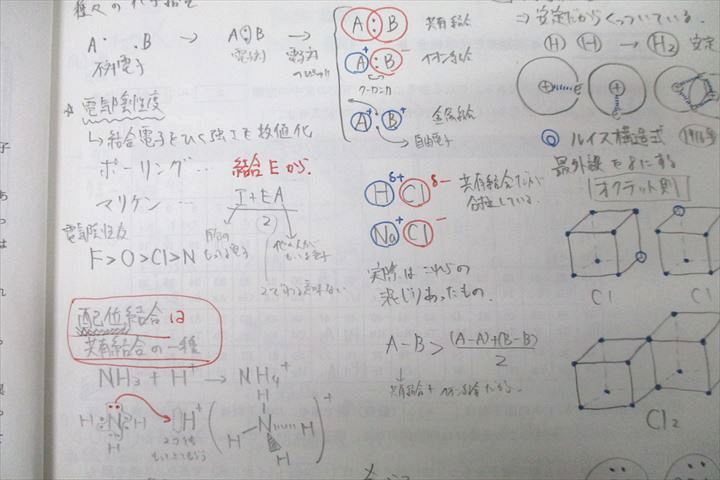 A・ ・B → A:B → 電子対
不対電子
電子対
☆ 電気陰性度
↳ 結合電子をひく強さを数値化
ポーリング… 結合Eから.
マリケン … I+EA
2
電気陰性度
F>O>Cl>N
2でわる意味ない
配位結合は
共有結合の一種
NH₃ + H⁺ → NH₄⁺
H N H H
H⁺
H H N H H ⁺
A:B 共有結合
A⁺:B⁻ イオン結合
クーロン力
A⁺ B⁺ 金属結合
自由電子
Hδ⁺ Clδ⁻ 共有結合だが
Na⁺ Cl⁻
実際はこれらの
混じりあったもの.
A-B > (A-A)+(B-B)
2
共有結合+イオン結合だから.
⇒ 安定だからくっついている.
H H → H₂ 安定
+ e + e
◎ ルイス構造式
最外殻を8にする
オクテット則
Cl Cl
Cl₂